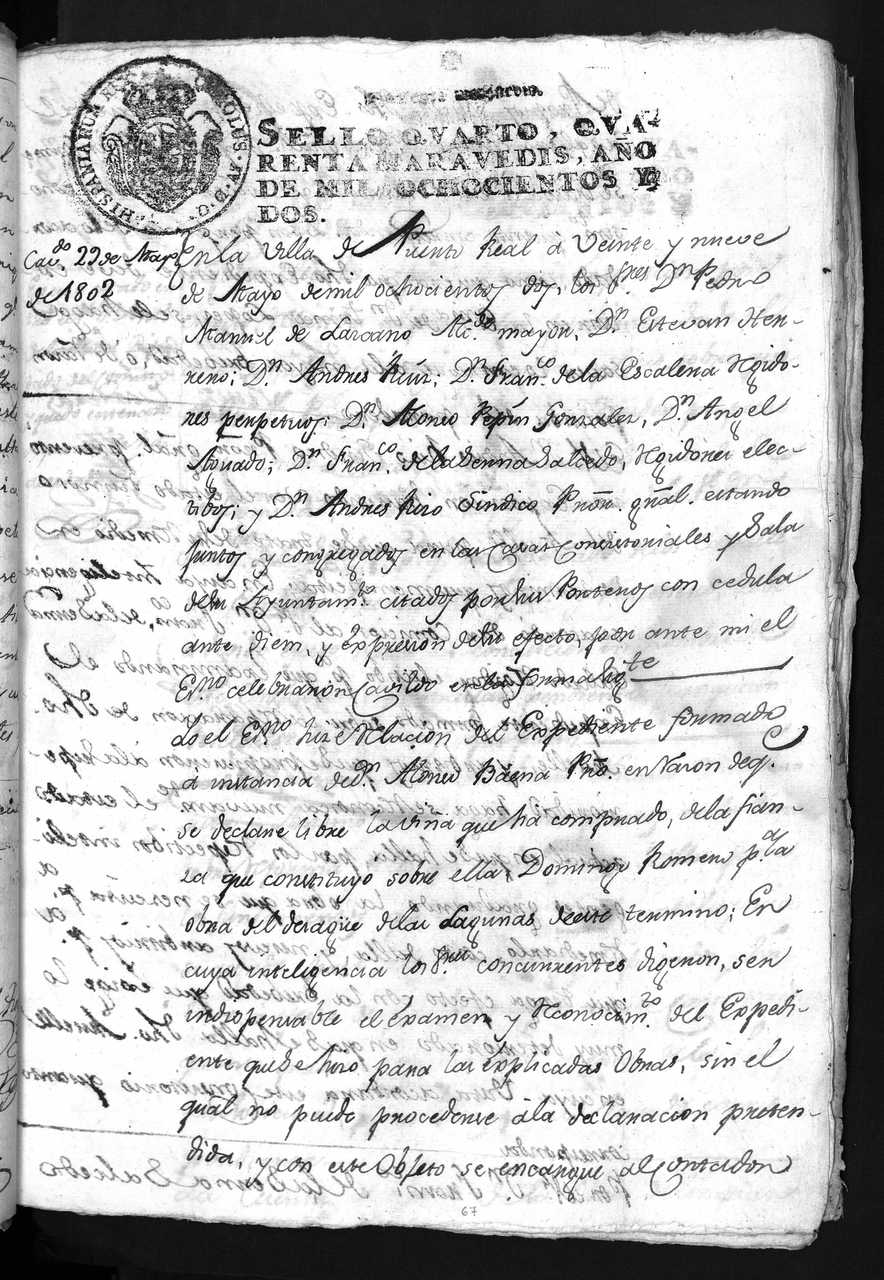 HISPANIARUM REX
CAROLUS IV D G
SELLO QVARTO, QVA-
RENTA MARAVEDIS, AÑO
DE MIL OCHOCIENTOS Y
DOS.
Cav.do 29 de Mayo
de 1802
En la Villa de Puente Real a Veinte y nueve
de Mayo de mil ochocientos dos, los Sres Dn Pedro
Manuel de Lazcano Alc.de mayor, Dn Estevan Her-
rero; Dn Andres Ruiz; Dn Fran.co de la Escalera Rgido-
res perpetuos: Dn Alonso Pepin Gonzalez, Dn Angel
Aguado; Dn Fran.co de la Serna Salcedo, Rgidores elec-
tibos; y Dn Andres Riro Sindico Prōn. gn̄al. estando
juntos y congregados en las Casas Consistoriales y Sala
de su Ayuntam.to citados por sus Porteros con cedula
ante diem, y expresion del efecto, por ante mi el
Es.no celebraron Cavildo en la forma sig.te
Yo el Es.no hize Relacion del Expediente formado
a instancia de Dn Alonso Baena Pro. en razon de q.
se declare libre la viña que ha comprado, de la fian-
za que constituyo sobre ella, Domingo Romero p.a la
obra del desagüe de las Lagunas de este termino; En
cuya inteligencia los Sres concurrentes digeron, ser
indispensable el examen y Rconocim.to del Expedi-
ente que se hizo para las explicadas Obras, sin el
qual no puede procederse à la declaracion preten-
dida, y con este Objeto se encargue al Contador
67